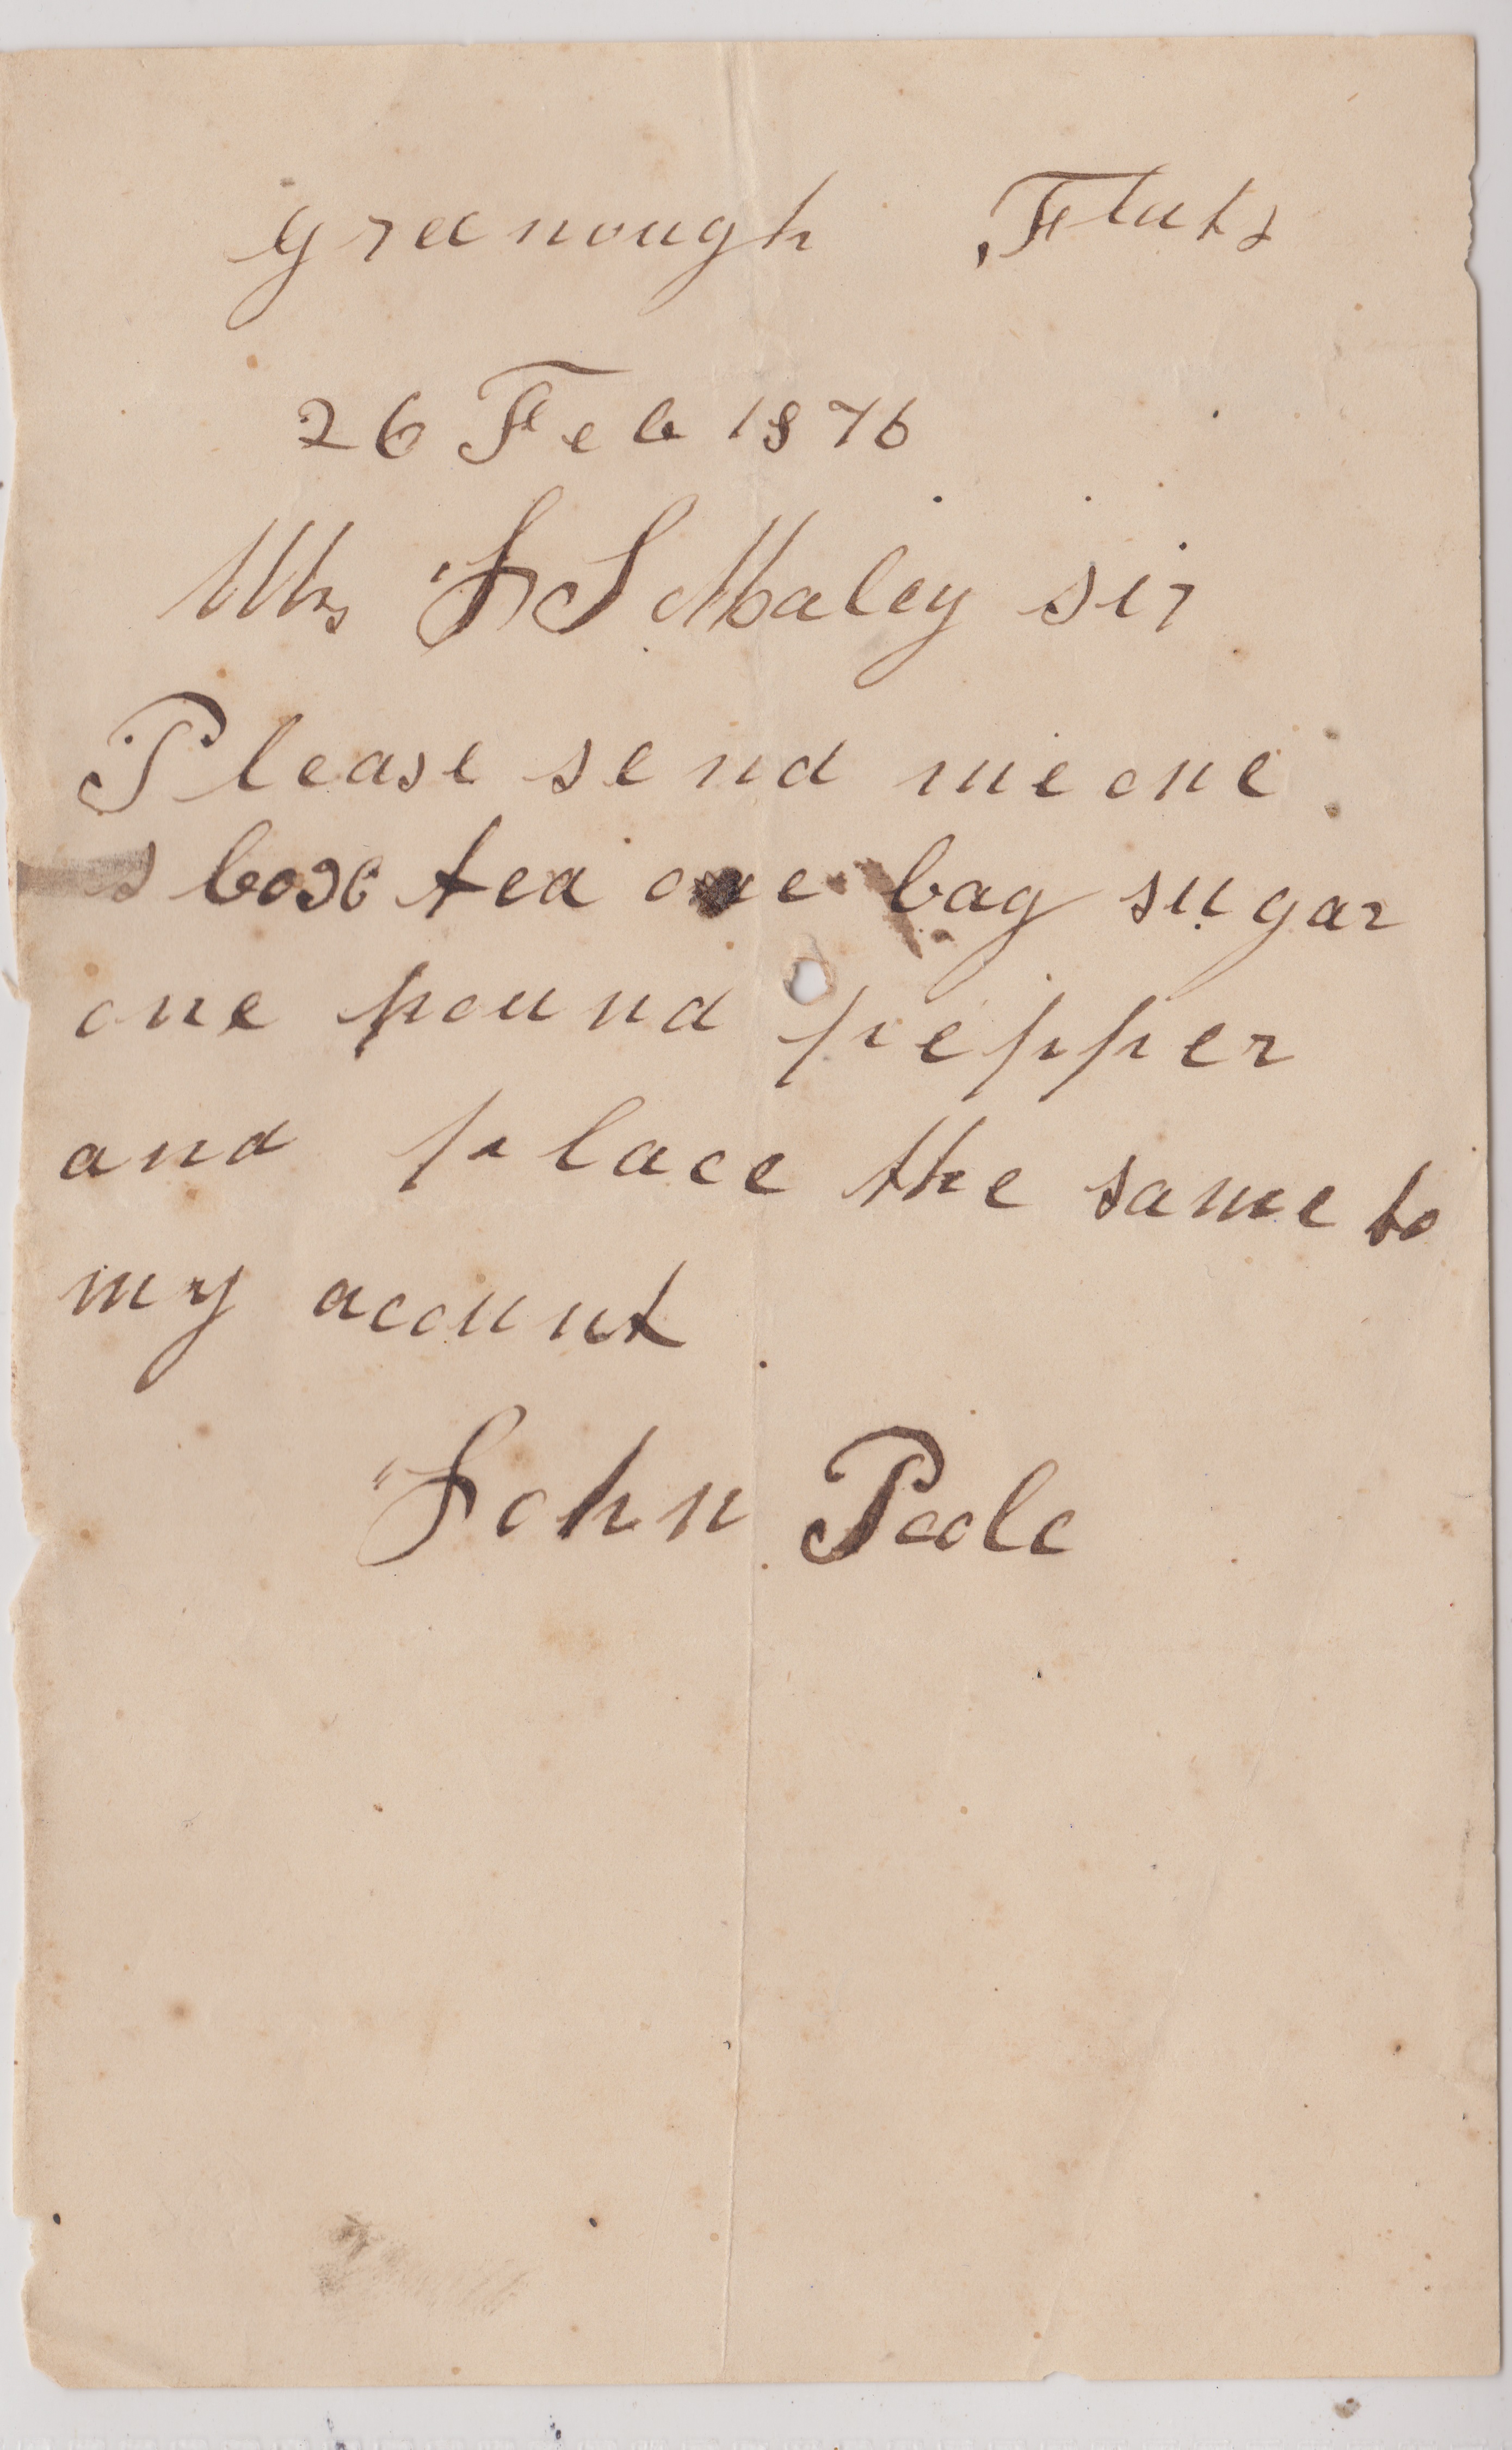 greenough Flats
26 Feb 1876
Mr J S Maley sir
Please send me one
box tea one bag sugar
one pound pepper
and place the same to
my acount
John Poole